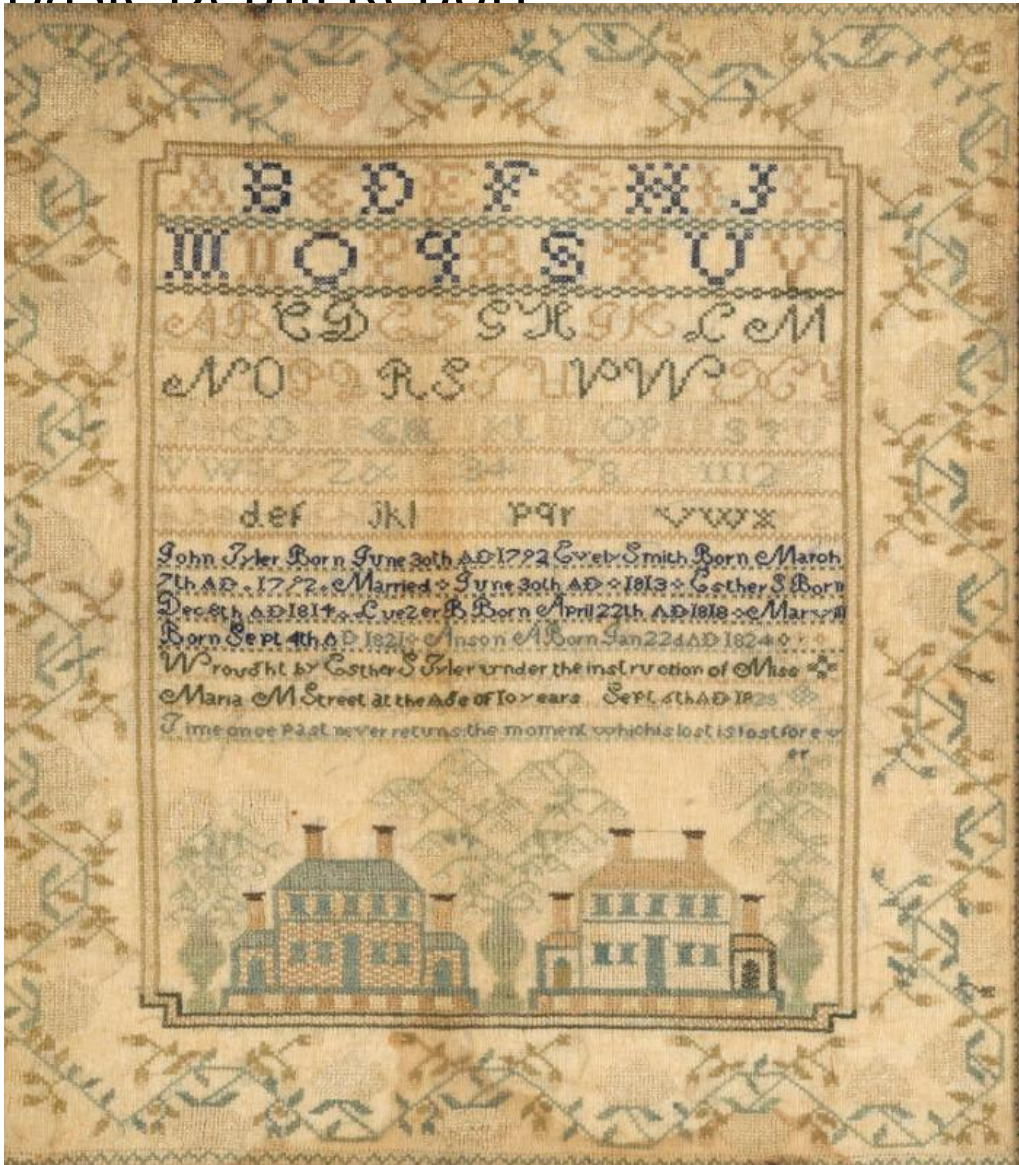 A B C D E F G H I J L
M N O P q R S T U V
A B C D E F G H I K L M
N O P Q R S T U V W X Y
C D G H K L O P S T U
V W Z & 3 4 7 8 11 12
d e f j k l p q r v w x
John Tyler Born June 30th AD 1792 Smith Born March
7th AD . 1792 . Married June 30th AD 1813 Esther S Born
Dec 8th AD 1814 B Born April 22th AD 1818
Born Sept 4th AD 1821 Anson A Born Jan 22d AD 1824
Wrought by Esther S Tyler under the instruction of Miss
Maria M Street at the Age of 10 years Sept 6th AD
Time once past never returns the moment which is lost is lost forev
er